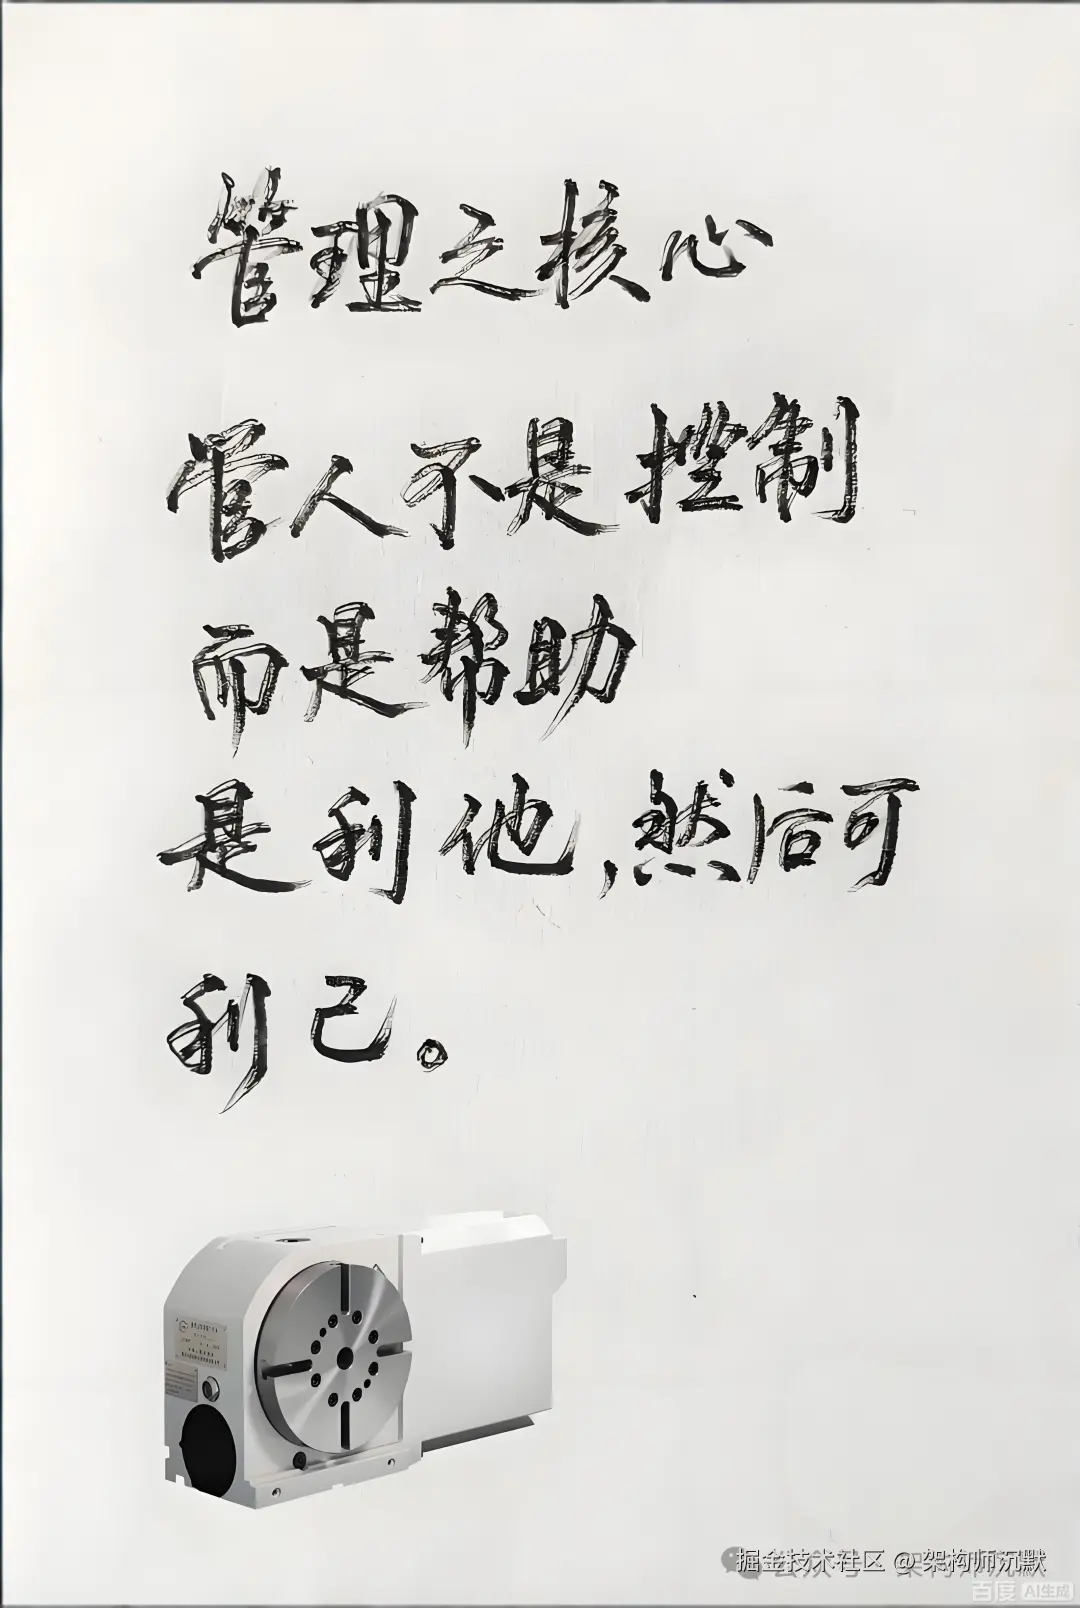 管理之核心
管人不是控制
而是帮助
是利他,然后可
利己。
掘金技术社区 @ 架构师沉默
百度 AI生成